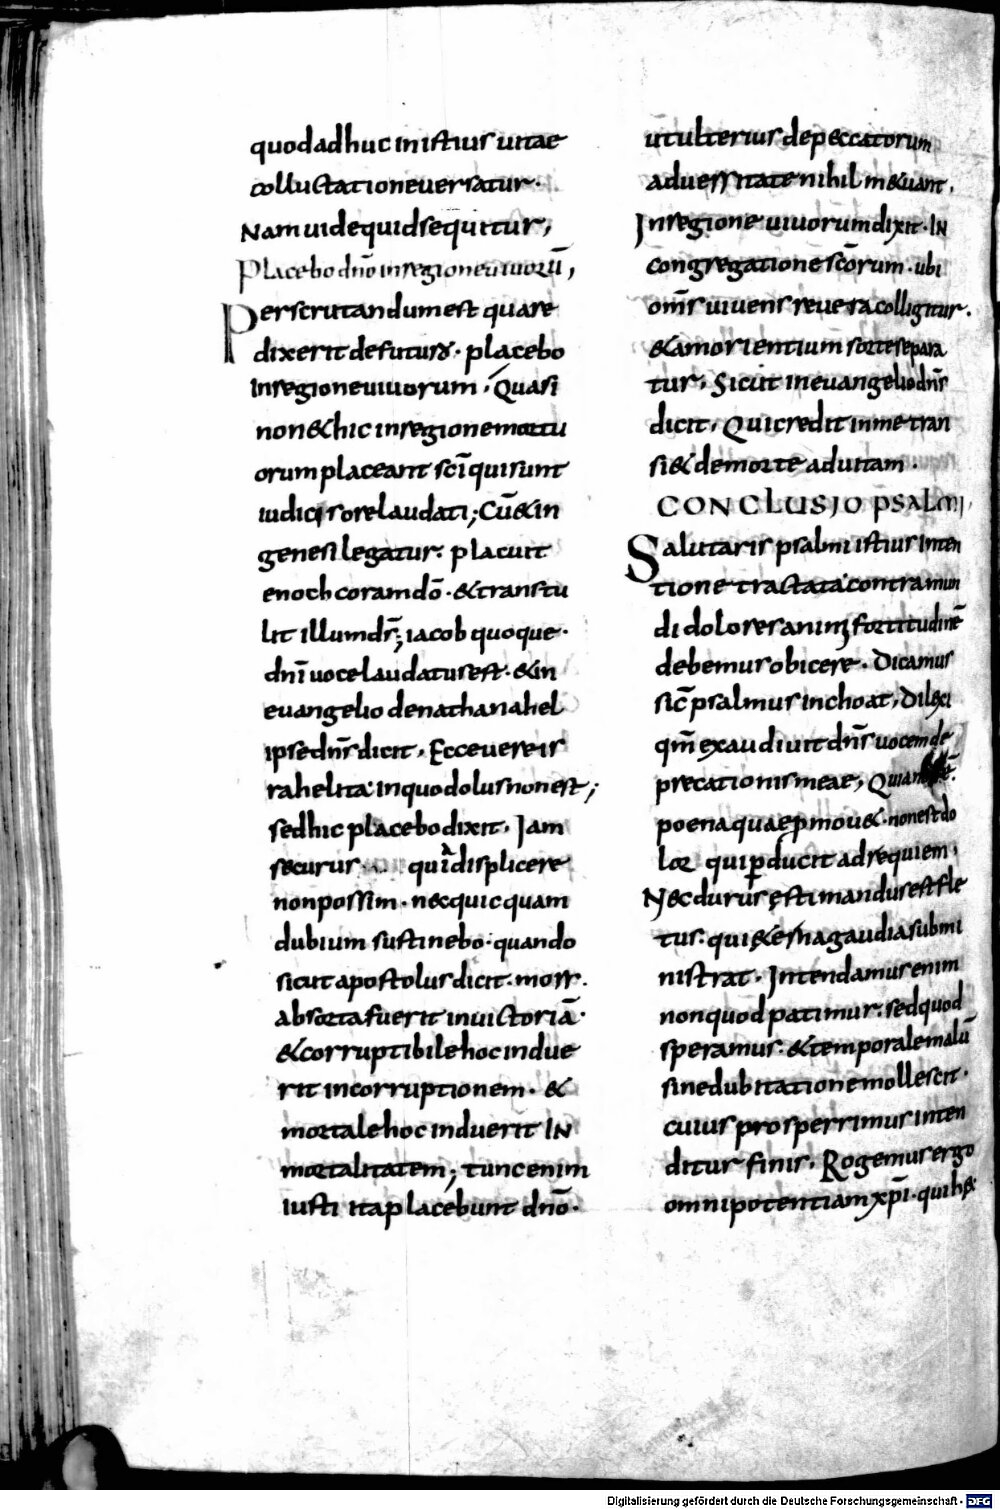 quod adhuc in istius uitae
colluctatione uersatur·
Nam uide quid sequitur,
Placebo dño in regione uiuorū,
Perscrutandum est quare
dixerit de futuro· placebo
in regione uiuorum, Quasi
non & hic in regione mortu
orum placeant scī qui sunt
iudicis ore laudati; Cū & in
genesi legatur· placuit
enoch coram dō· & transtu
lit illum dr̄; iacob quoque·
dnī uoce laudatus est· & in
euangelio de nathanahel
ipse dnr̄ dicit, Ecce uere is
rahelita in quo dolus non est;
sed hic placebo dixit, Iam
securus quia displicere
non possim· nec quicquam
dubium sustinebo· quando
sicut apostolus dicit· mors·
absorta fuerit in uictoriā·
& corruptibile hoc indue
rit incorruptionem· &
mortale hoc induerit IN
mortalitatem; tunc enim
iusti ita placebunt dnō·
ut ulterius de peccatorum
aduersitate nihil m&uant,
In regione uiuorum dixit· IN
congregatione scōrum· ubi
omr̄s uiuens reuera colligitur·
& a morientium sorte separa
tur, Sicut in euangelio dnr̄
dicit, Qui credit in me tran
si& de morte ad uitam·
CONCLUSIO PSALMI,
Salutaris psalmi istius inten
tione tractata contra mun
di dolores animi fortitudinē
debemus obicere· Dicamus
sic̄ psalmus inchoat, Dilexi
qm̄ exaudiuit dnr̄ uocem de
precationis meae,
poena quae pmou&· non est do
lor qui pducit ad requiem,
Nec durus ęstimandus est fle
tus· qui gaudia submi
nistrat· Intendamus enim
non quod patimur· sed quod
speramus· & temporale malū
sine dubitatione mollescit·
cuius prosperrimus inten
ditur finis, Rogemus ergo
omnipotentiam xpī· qui h&
Digitalisierung gefördert durch die Deutsche Forschungsgemeinschaft - DFG